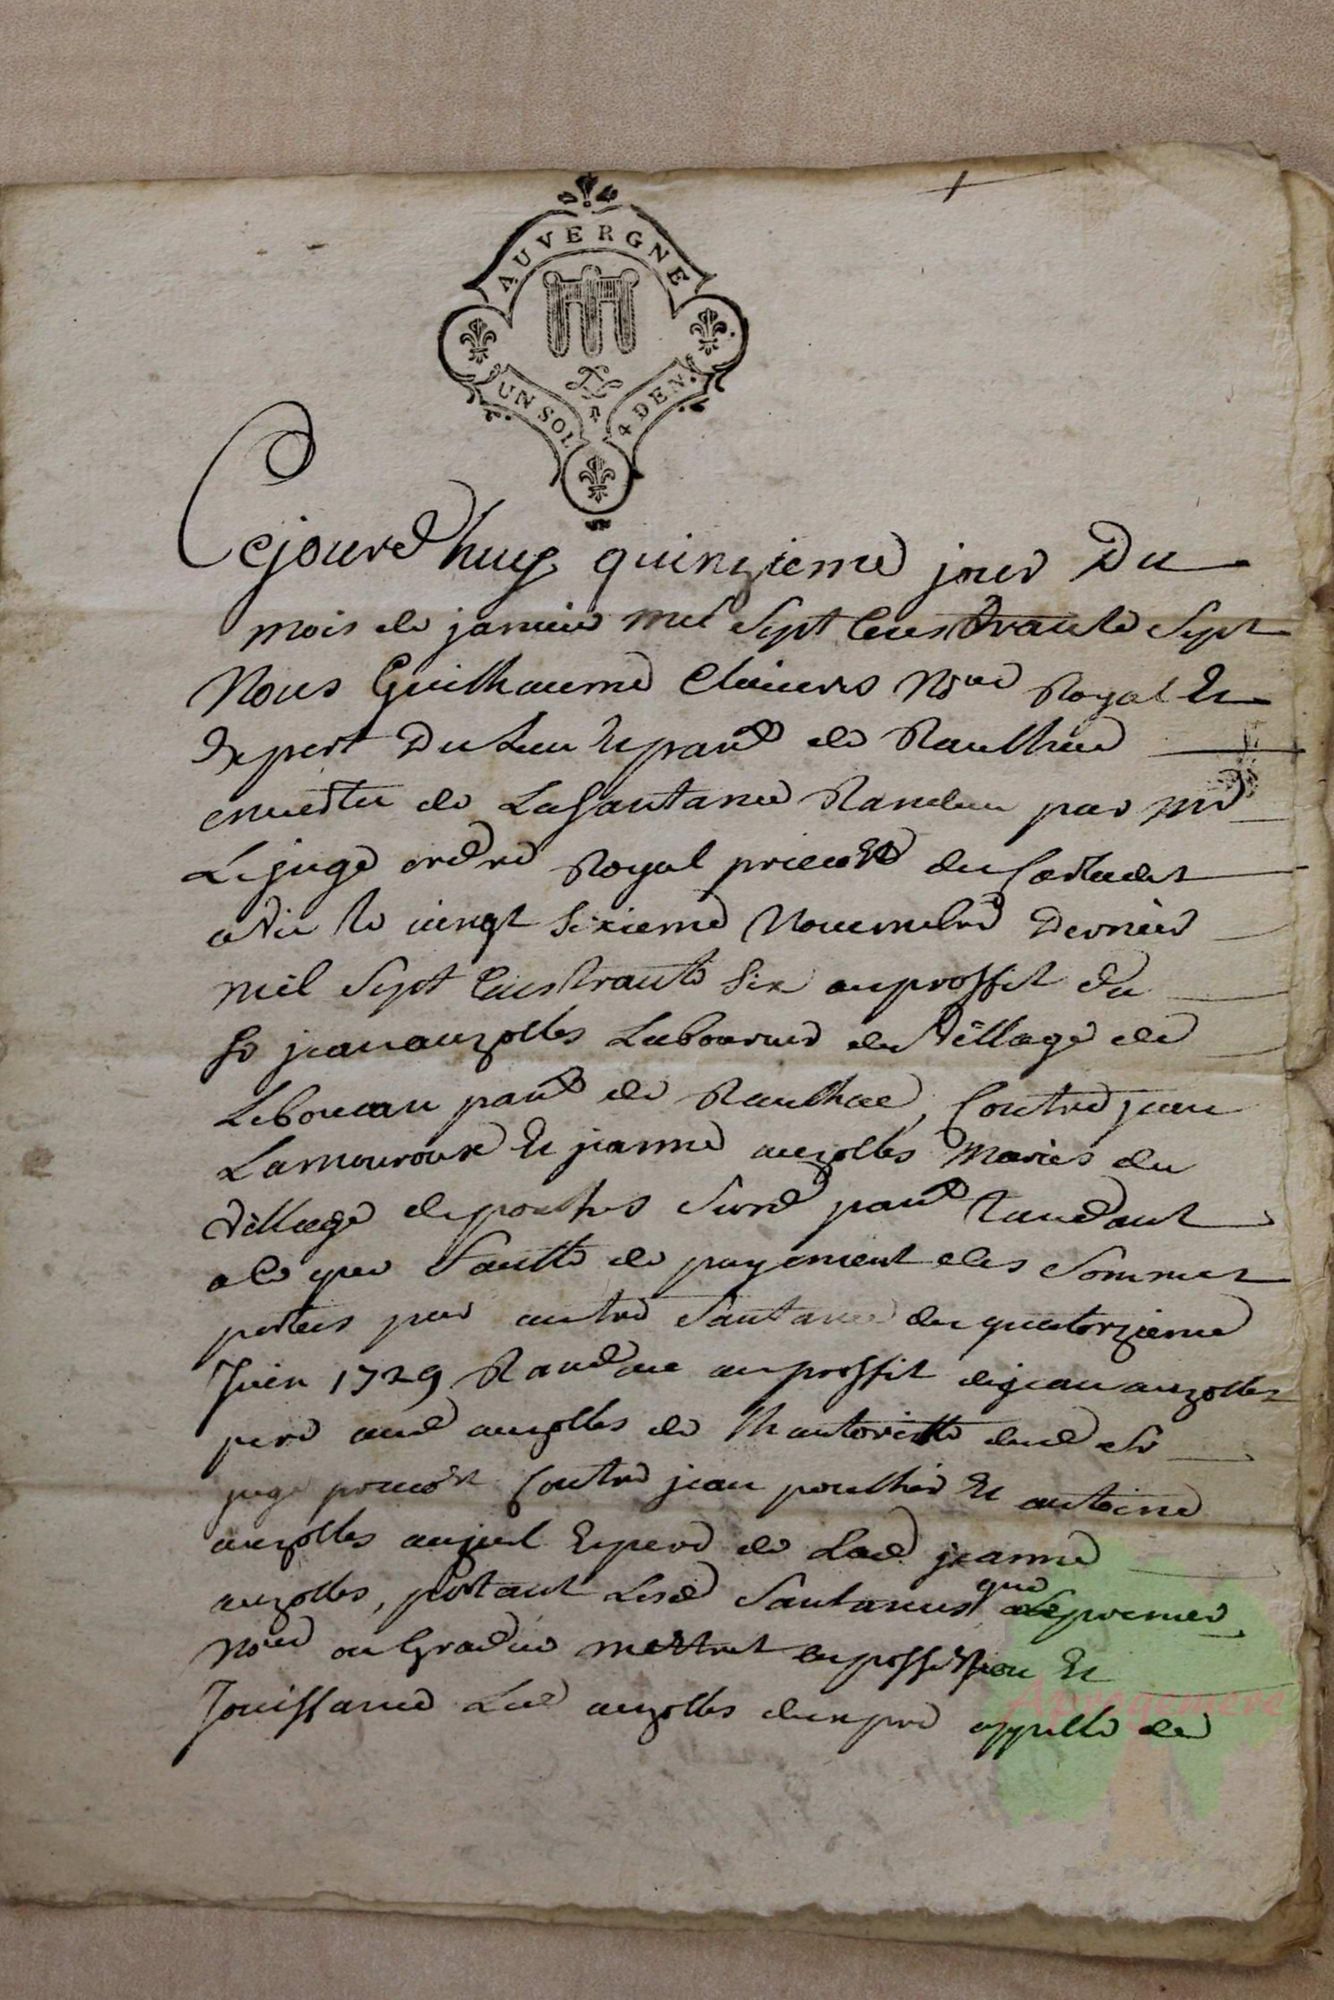 AUVERGNE
UN SOL 4 DEN.
Cejourd huy quinzieme jour Du
mois de janvier mil Sept Cens trante Sept
Nous Guilhaume Nre Royal Et
Expert Du Lieu Et parse de Raulhac
en vertu de La Santance Randue par mr
Le juge ordre Royal du Carladet
a Vic le vingt Sixieme Novembre Dernier
mil Sept Cens trante Six au proffit du
Sr jean auzolles Laboureur du Village de
Leboucau parse de Raulhac, Contre jean
Lamouroux Et jeanne auzolles Maries du
Village de Surd parse Tandant
a Ce que Faulte de payement des Sommes
portees par autre Santance du quatorzieme
Juin 1729 Randue au proffit de jean auzolles
pere aud auzolles de Lhautoritte dud Sr
juge Contre jean poulhier Et antoine
auzolles ayeul Et pere de Lad jeanne
auzolles, portant Lesd Santances que Le premier
Nore ou Gradué mettret en possession Et
Jouissance Led auzolles du pré appellé de
Apregemere